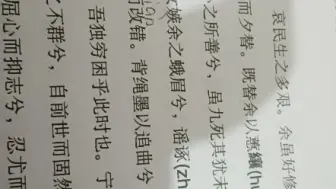 哀民生之多艰。余虽好修
而夕替。既替余以蕙纕(hu
之所善兮，虽九死其犹未
嫉余之蛾眉兮，谣诼(zh
而改错。背绳墨以追曲兮
吾独穷困乎此时也。宁
之不群兮，自前世而固然
屈心而抑志兮，忍尤而